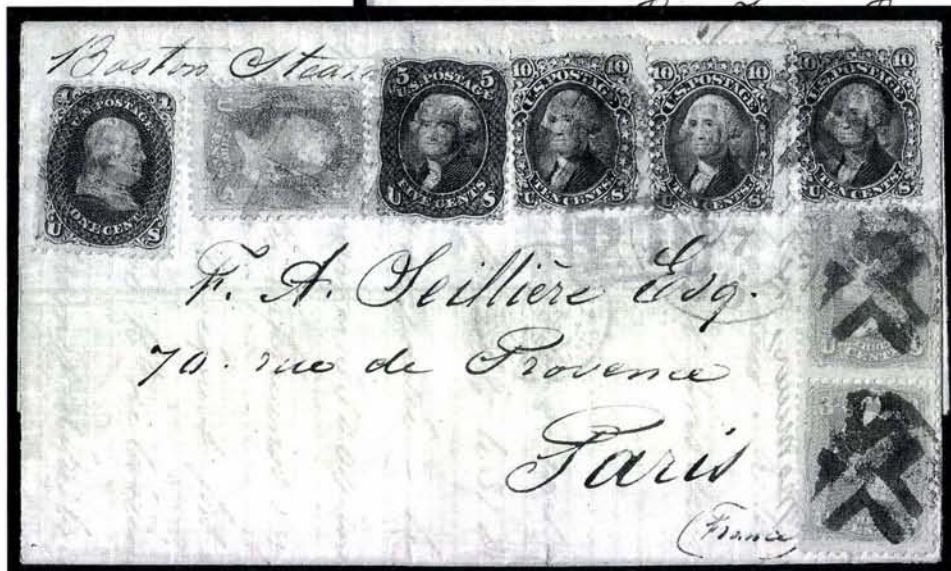 Boston Steam
1 1
U.S. POSTAGE
ONE CENT
U S
5 5
U.S. POSTAGE
FIVE CENTS
U S
10 10
U.S. POSTAGE
TEN CENTS
U S
10 10
U.S. POSTAGE
TEN CENTS
U S
10 10
U.S. POSTAGE
TEN CENTS
U S
F. A. Seillière Esq.
70. rue de Provence
Paris
(France)